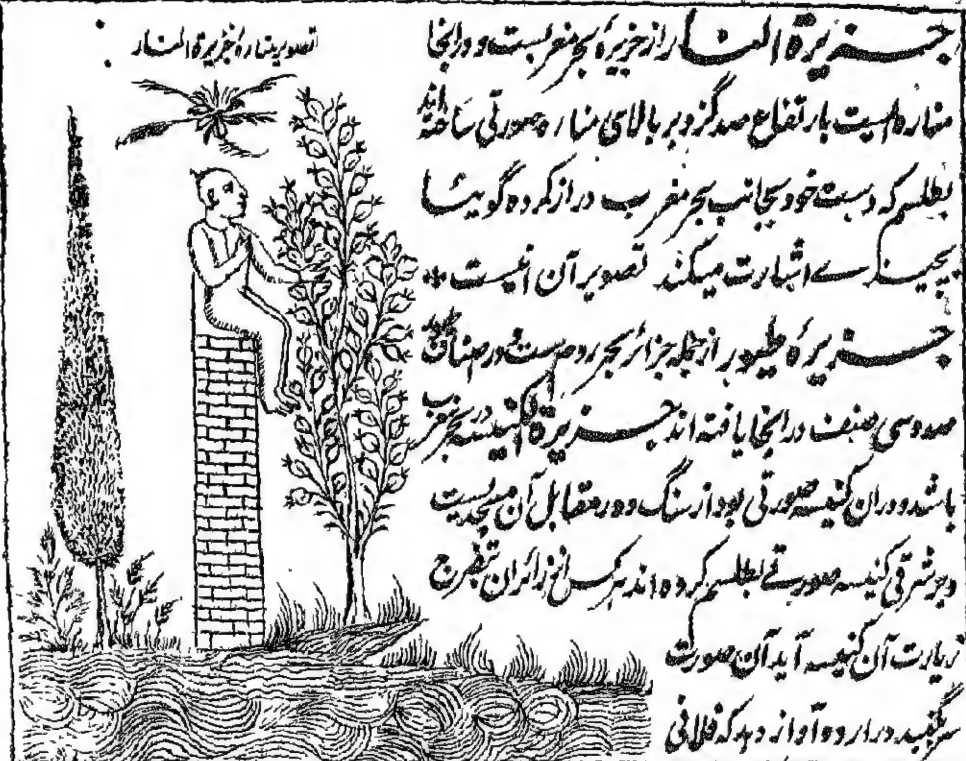 تصویر منارهٔ جزیرة المنار
جزیرة المنار از جزیرهٔ بحر مغربست و در انجا
مناره ایست بارتفاع صد گز و بر بالای مناره صورتی ساخته اند
بطلسم که دست خود بجانب بحر مغرب دراز کرده گوئیا
بچیزے اشارت میکند تصویر آن اینست
جزیرهٔ طیور از جمله جزائر بحر روم ست در
صد و سی صنف در انجا یافته اند جزیرة الکنیسه در بحر مغرب
باشد و دران کنیسه صورتی بود از سنگ و در مقابل آن مسجدیست
و بر شرقی کنیسه صورتے بطلسم کرده اند هر کس از زائران بتفرج
زیارت آن کنیسه آید آن صورت
سر بگنبد در ارد و آواز دهد که فلانی